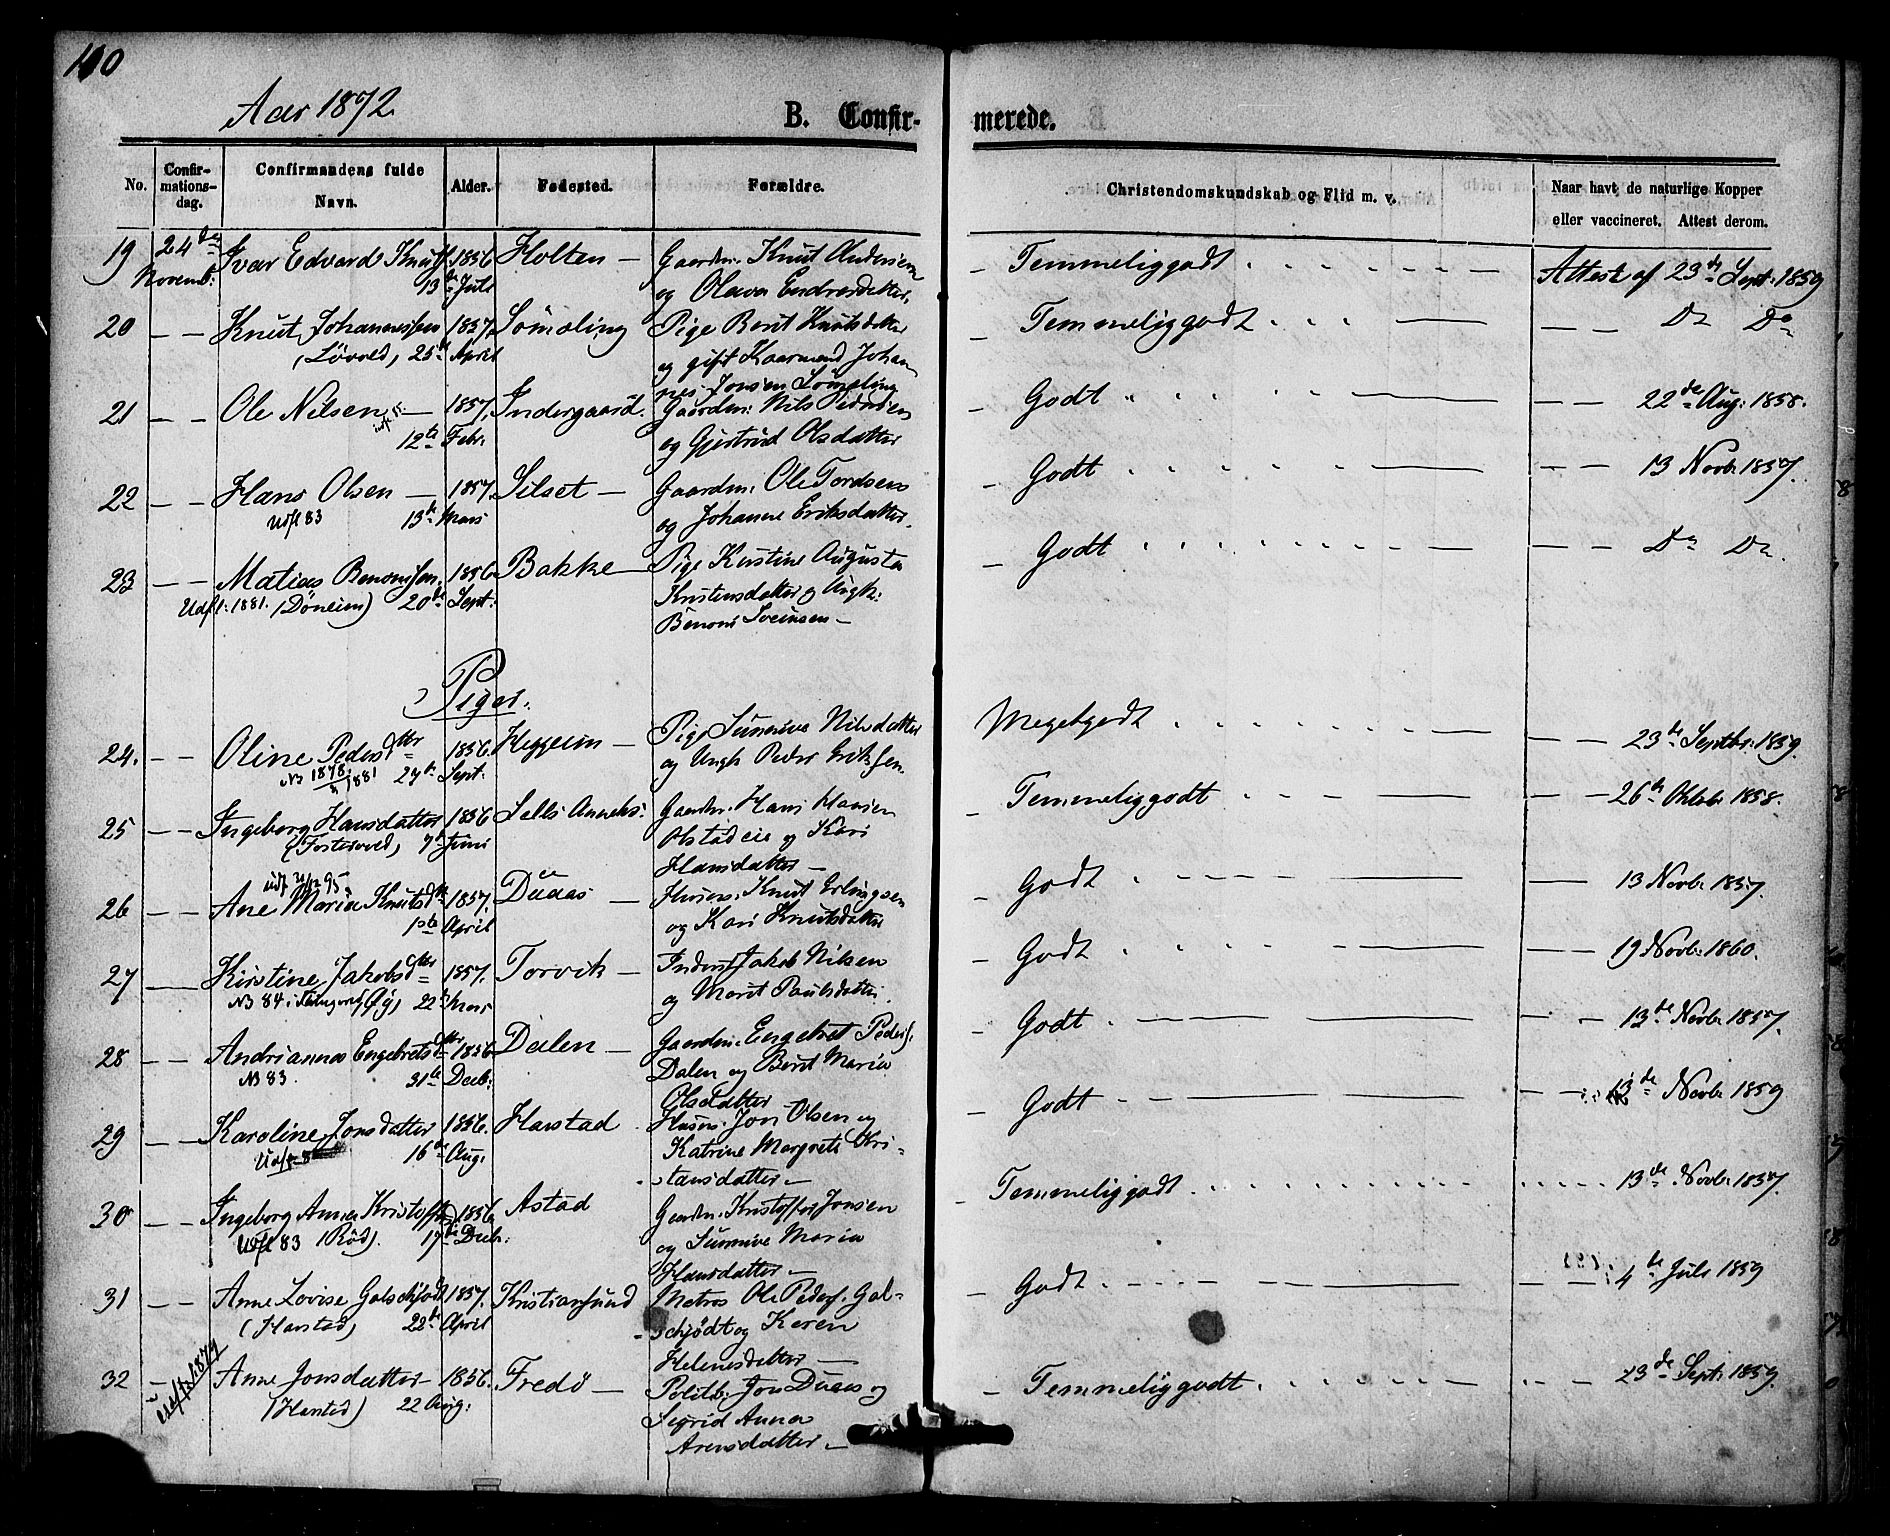 110
Aar 1872
B. Confir- merede.
No. Confir-mations-dag. Confirmandens fulde Navn. Alder. Fødested. Forældre. Christendomskundskab og Flid m. v. Naar havt de naturlige Kopper eller vaccineret. Attest derom.
19 24de Ivar Edvard Knuts. 1856 Holten — Gaardm. Knut Andersen — Temmeliggodt Attest af 23de Sept: 1859
Novemb: 13de Juli og Olava Endresdatter,
20 — — Knut Johannessen 1857. Sömöling Pige Berit Knutsdatter — Temmeliggodt — — Do Do
(Lövold) 25de April og gift Kaarmand Johan
nes Jonsen Sömöling
21 — — Ole Nilsen — 1857. Indergaard. Gaardm: Nils Pedersen — Godt — — 22de Aug: 1858.
12te Febr. og Gjertrud Olsdatter
22 — — Hans Olsen — 1857. Silset — Gaardm: Ole Tordsen — Godt — — 13 Novbr 1857.
Udfl 83 13de Mars og Johanne Eriksdatter.
23 — — Matias Benonisen. 1856 Bakke — Pige Kirstine Augusta — Godt — — Do Do
Udfl: 1881. (Döneim) 20de Sept: Kristensdatter og Ungk:
Benoni Sveinsen —
Piger.
24. — — Oline Pedersdtter 1856. Heggeim — Pige Sunnive Nilsdatter Megetgodt — — 23de Septbr: 1859.
1881 27de Sept: og Ungk Peder Eriksen.
25 — — Ingeborg Hansdatter 1856 Sells Anneks. Gaardm. Hans Hansen — Temmeliggodt — — 26de Oktobr 1858.
(Fostervold) 7de Juni Olstadeie og Kari
Hansdatter —
26 — — Ane Maria Knutsdtr 1857. Duaas — Husm: Knut Erlingsen — Godt — — 13 Novbr 1857.
1ste April og Kari Knutsdatter
27 — Kirstine Jakobsdtter 1857. Torvik — Inderst Jakob Nilsen — Godt — — 19 Novbr: 1860.
22de Mars og Marit Paulsdatter.
28 — — Andrianna Engebretsdtter 1856 Dalen — Gaardm. Engebret Peders. — Godt — 13de Novbr 1857.
N3 83. 31te Decb: Dalen og Berit Maria
Olsdatter
29 — — Karoline Jonsdatter 1856. Harstad Husm. Jon Olsen og — Godt — — 13de Novbr 1859
16de Aug: Katrine Margrete Kri-
stansdatter —
30 — — Ingeborg Anna Kristoffersd. 1856 Astad Gaardm. Kristoffer Jonsen — Temmeliggodt 13de Novbr 1857.
Udfl 83 (Röd). 17de Decb: og Sunnive Maria
Hansdatter —
31 — — Anne Lovise Galschjödt 1857. Kristiansund Matros Ole Peders. Gal- — Godt — — 4de Juli 1859
(Harstad) 22de April schjödt og Karen
Helenesdatter —
32 — Anne Jonsdatter — 1856. Fredö — Politb. Jon Duaas og — Temmeliggodt 23de Sept: 1859.
(Harstad) 22 Aug: Sigrid Anna
Arensdatter —